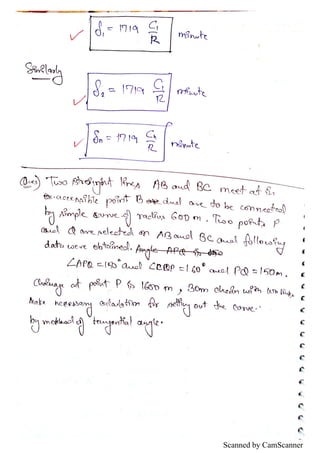 δ₁ = 1719 C₁/R minute
Similarly
δ₂ = 1719 C₁/R minute
δn = 1719 C₁/R minute
Ques) Two straight lines AB and BC meet at
inaccessible point B are to be connected
by simple curve of radius 600 m. Two points P
and Q are selected on AB and BC and following
data were obtained. Angle APQ is 150
∠APQ = 150° and ∠CQP = 160° and PQ = 150m.
Chainage of point P is 1600 m, 30m chain
Make necessary calculation for setting out the curve.
by method of tangential angle.
Scanned by CamScanner